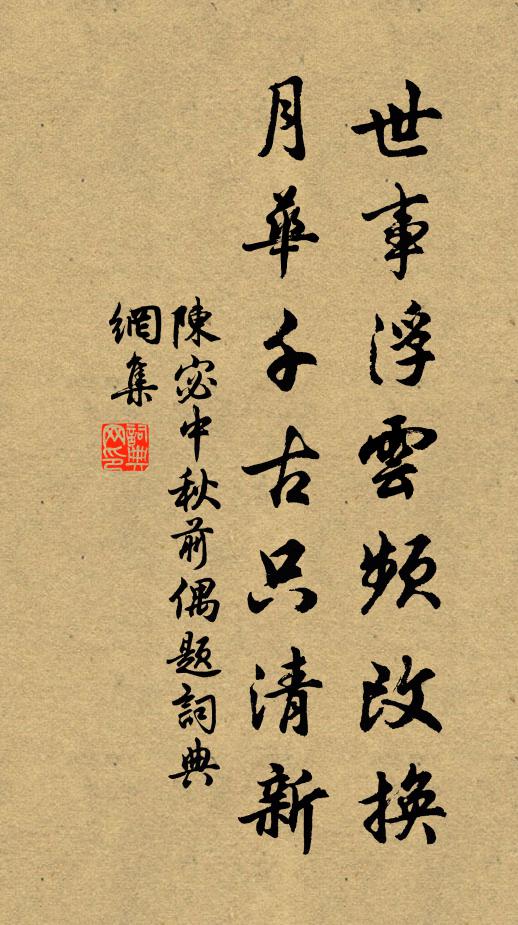 世事浮雲頻改換
月華千古只清新
陳宓中秋前偶題詞典
網集
詞典网印